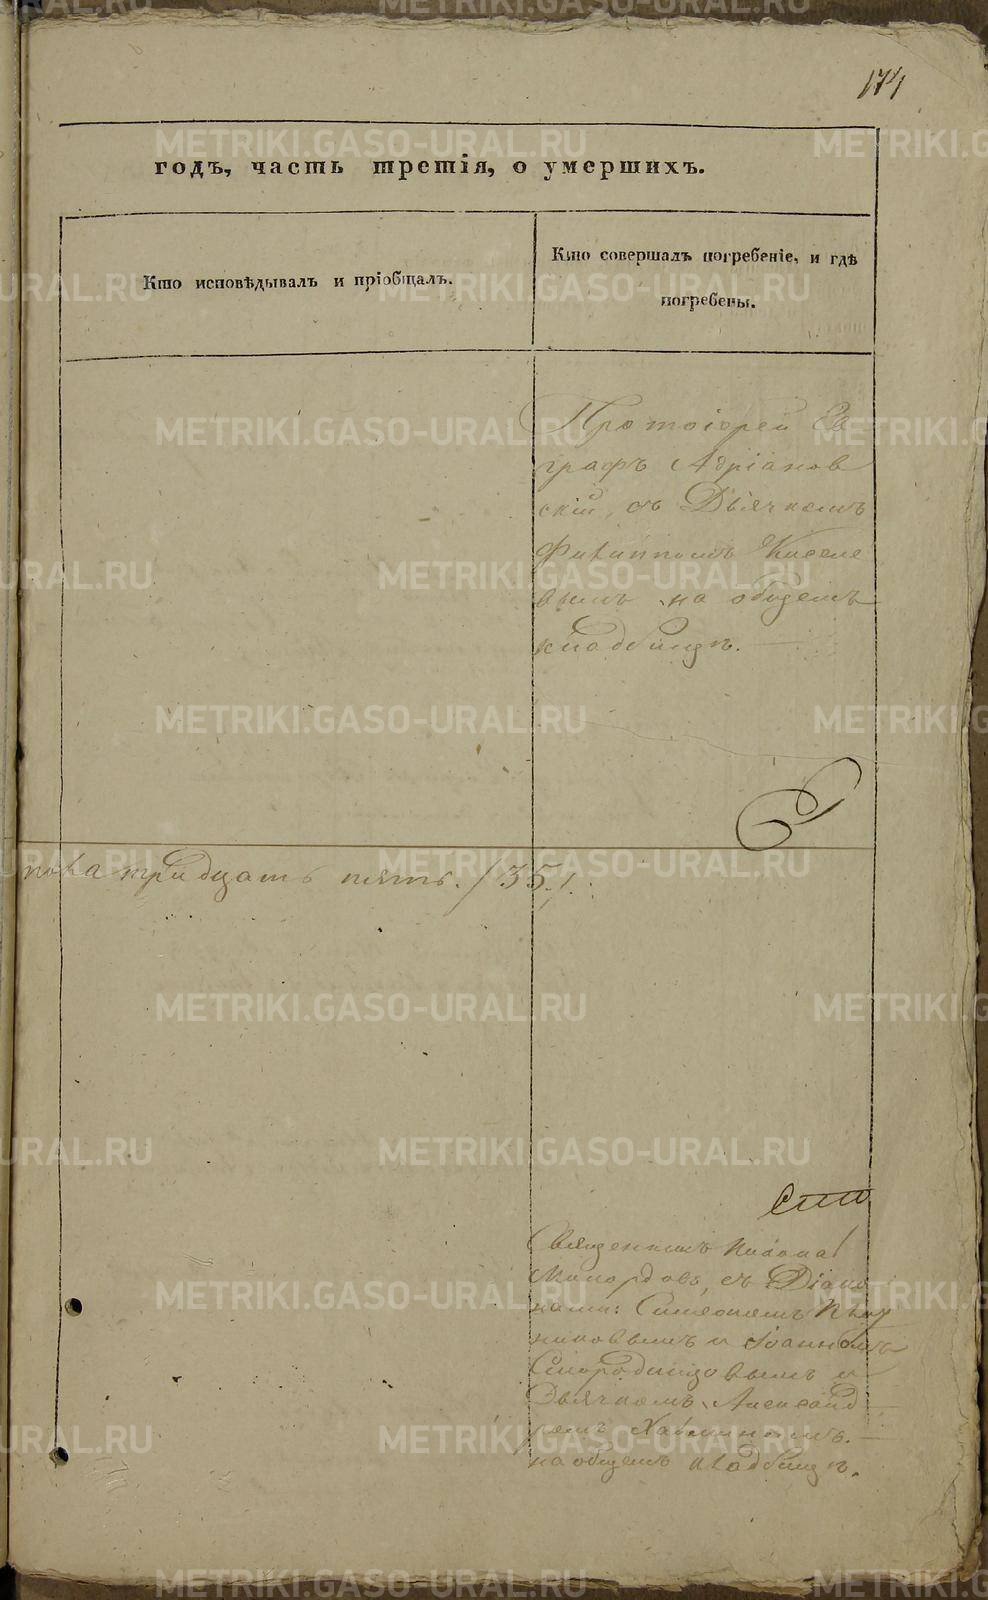 174
годъ, часть третія, о умершихъ.
Кто исповѣдывалъ и пріобщалъ.
Кто совершалъ погребеніе, и гдѣ
погребены.
Протоіерей Ев
графъ Адріанов
скій, съ Дьячкомъ
Филиппомъ Киселе
вымъ на общемъ
кладбищѣ.
пола тридцать пять. /35./.
Священникъ
съ Діако
нами: Симеономъ
никовымъ и Іоанномъ
Смородинцовымъ и
Дьячкомъ Александ
ромъ
на общемъ кладбищѣ.
METRIKI.GASO-URAL.RU